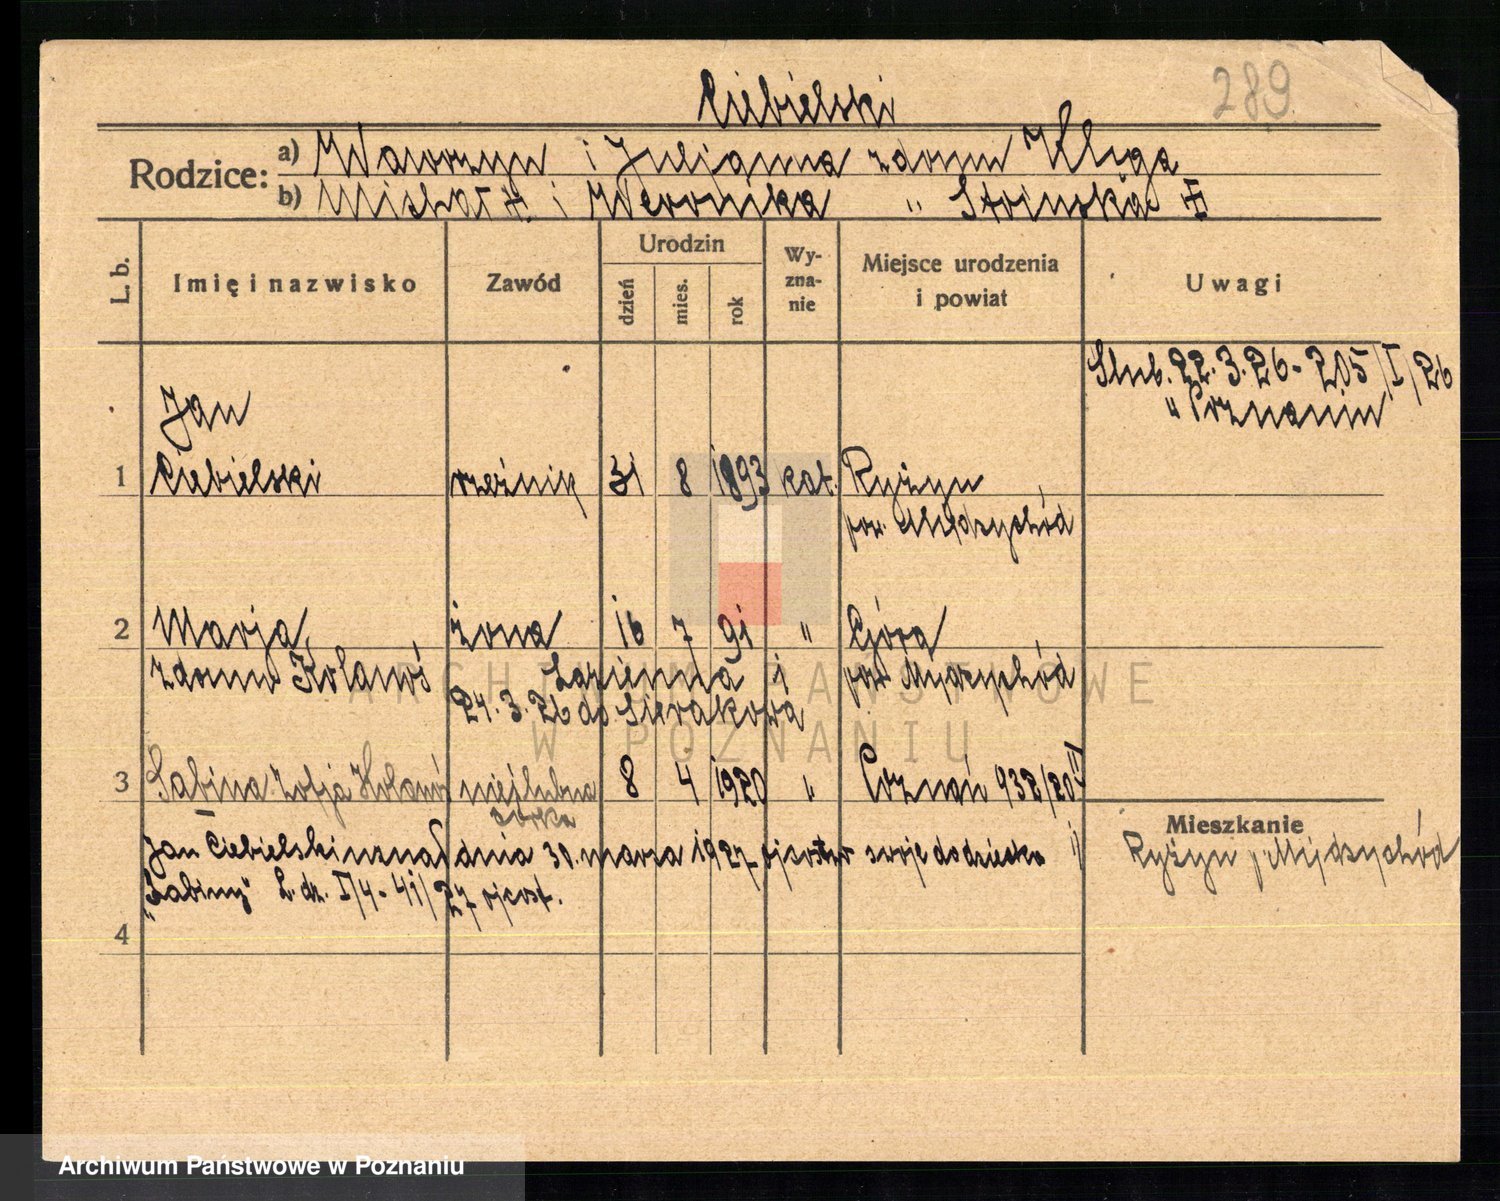 289
Ciebielski
Rodzice: a) Wawrzyn i Juljanna zdomu Kliga
b) Michał i Weronika " Stoinska
L. b. Imię i nazwisko Zawód Urodzin dzień mies. rok Wy-zna-nie Miejsce urodzenia i powiat Uwagi
Ślub. 22.3.26 - 205/I/26
" Poznaniu
Jan
1 Ciebielski rzeźnik 31 8 1893 kat. Ryżyn
pow. Międzychód
2 Marja żona 16 7 91 " Góra
zdomu Kolanoś Łazienna i pow. Międzychód
24.3.26 do Sierakowa
3 Sabina Zofja Kolanoś nieślubna 8 4 1920 " Poznań 932/20
córka
Mieszkanie
Jan Ciebielski uznał dnia 30. marca 1927 ojcostwo swoje do dziecka
Ryżyn p. Międzychód
"Sabiny" L. dz. I/4 - 41/27 ojcost.
4
ARCHIWUM PAŃSTWOWE
W POZNANIU
Archiwum Państwowe w Poznaniu